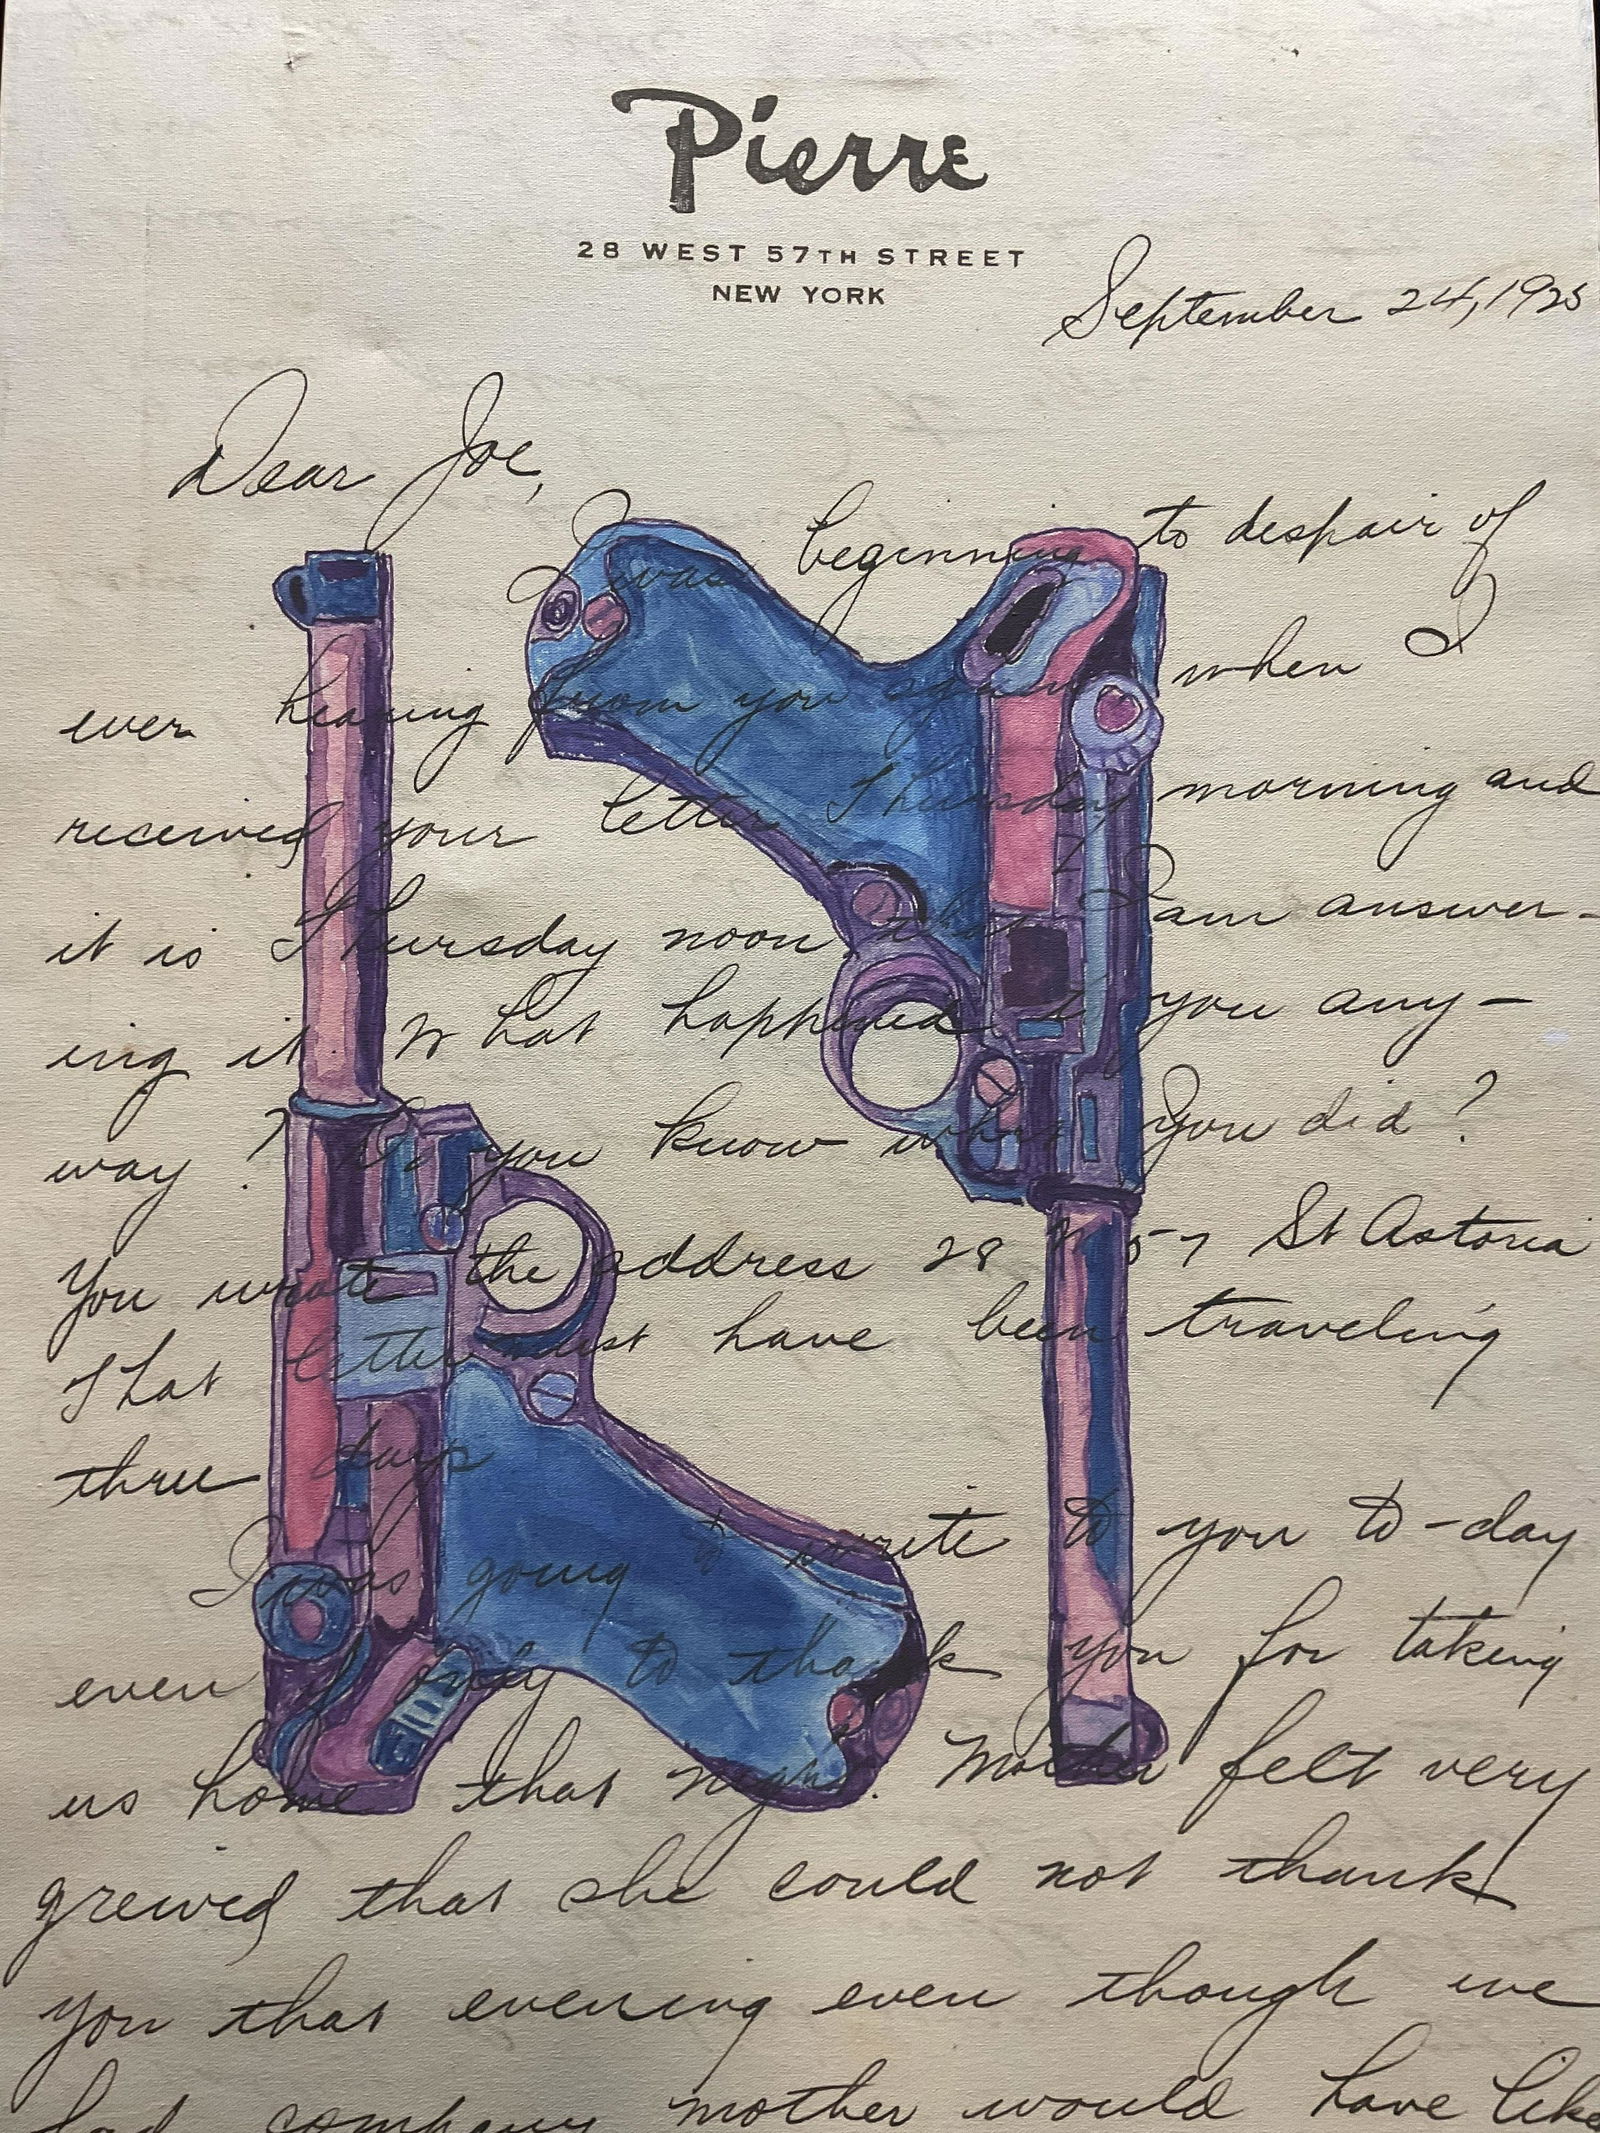 Pierre
28 WEST 57TH STREET
NEW YORK
September 24, 1925
Dear Joe,
I was beginning to despair of
ever hearing from you again when I
received your letter Thursday morning and
it is Thursday noon that I am answer-
ing it. What happened to you any-
way? Do you know what you did?
You wrote the address 28 W 57 St Astoria
That letter must have been traveling
three days
I was going to write to you to-day
even if only to thank you for taking
us home that night. Mother felt very
greived that she could not thank
you that evening even though we
had company mother would have like